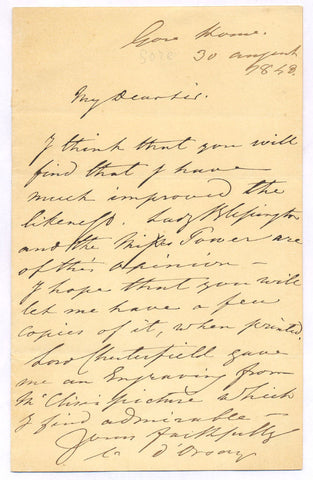 Gore House.
30 august
1843.
My Dear Sir.
I think that you will
find that I have
much improved the
likeness. Lady Blessington
and the Miss Power are
of this opinion —
I hope that you will
let me have a few
copies of it, when printed.
Lord Chesterfield gave
me an Engraving from
picture which
I find admirable —
Yours faithfully
d'Orsay